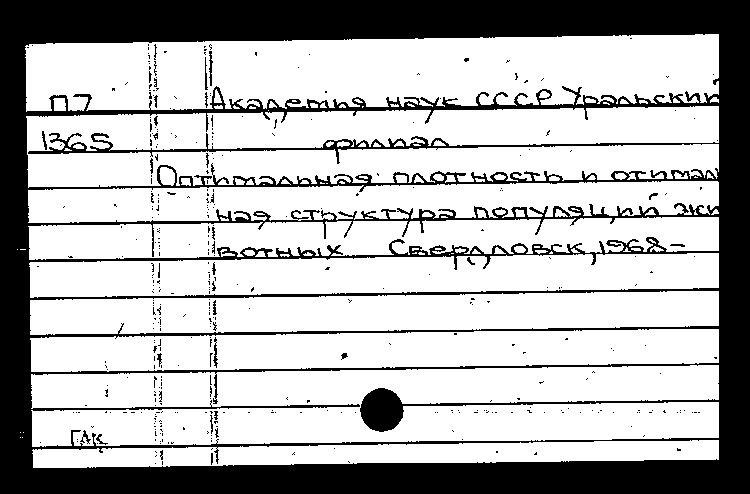 П7 Академия наук СССР Уральский
1365 филиал
Оптимальная плотность и отимал
ная структура популяций жи
вотных Свердловск, 1968-
ГАК